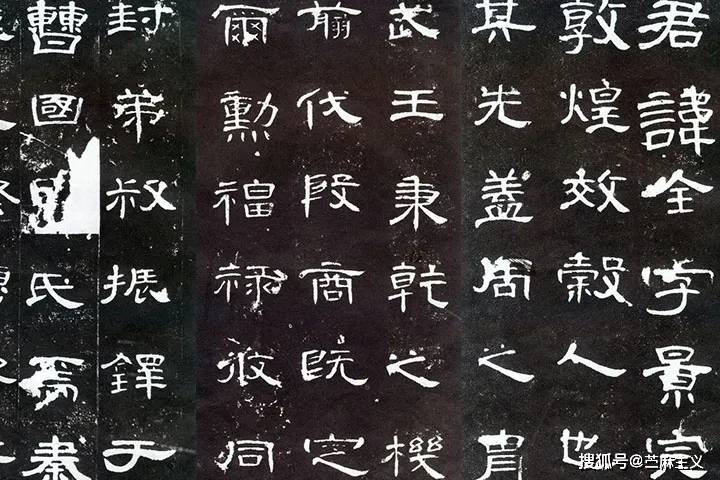 君諱全字景完
敦煌效穀人也
其先蓋周之胄
武王秉乾之機
翦伐殷商既定
爾勳福祿攸同
封弟叔振鐸于
曹國因氏焉秦
搜狐号@苎麻主义